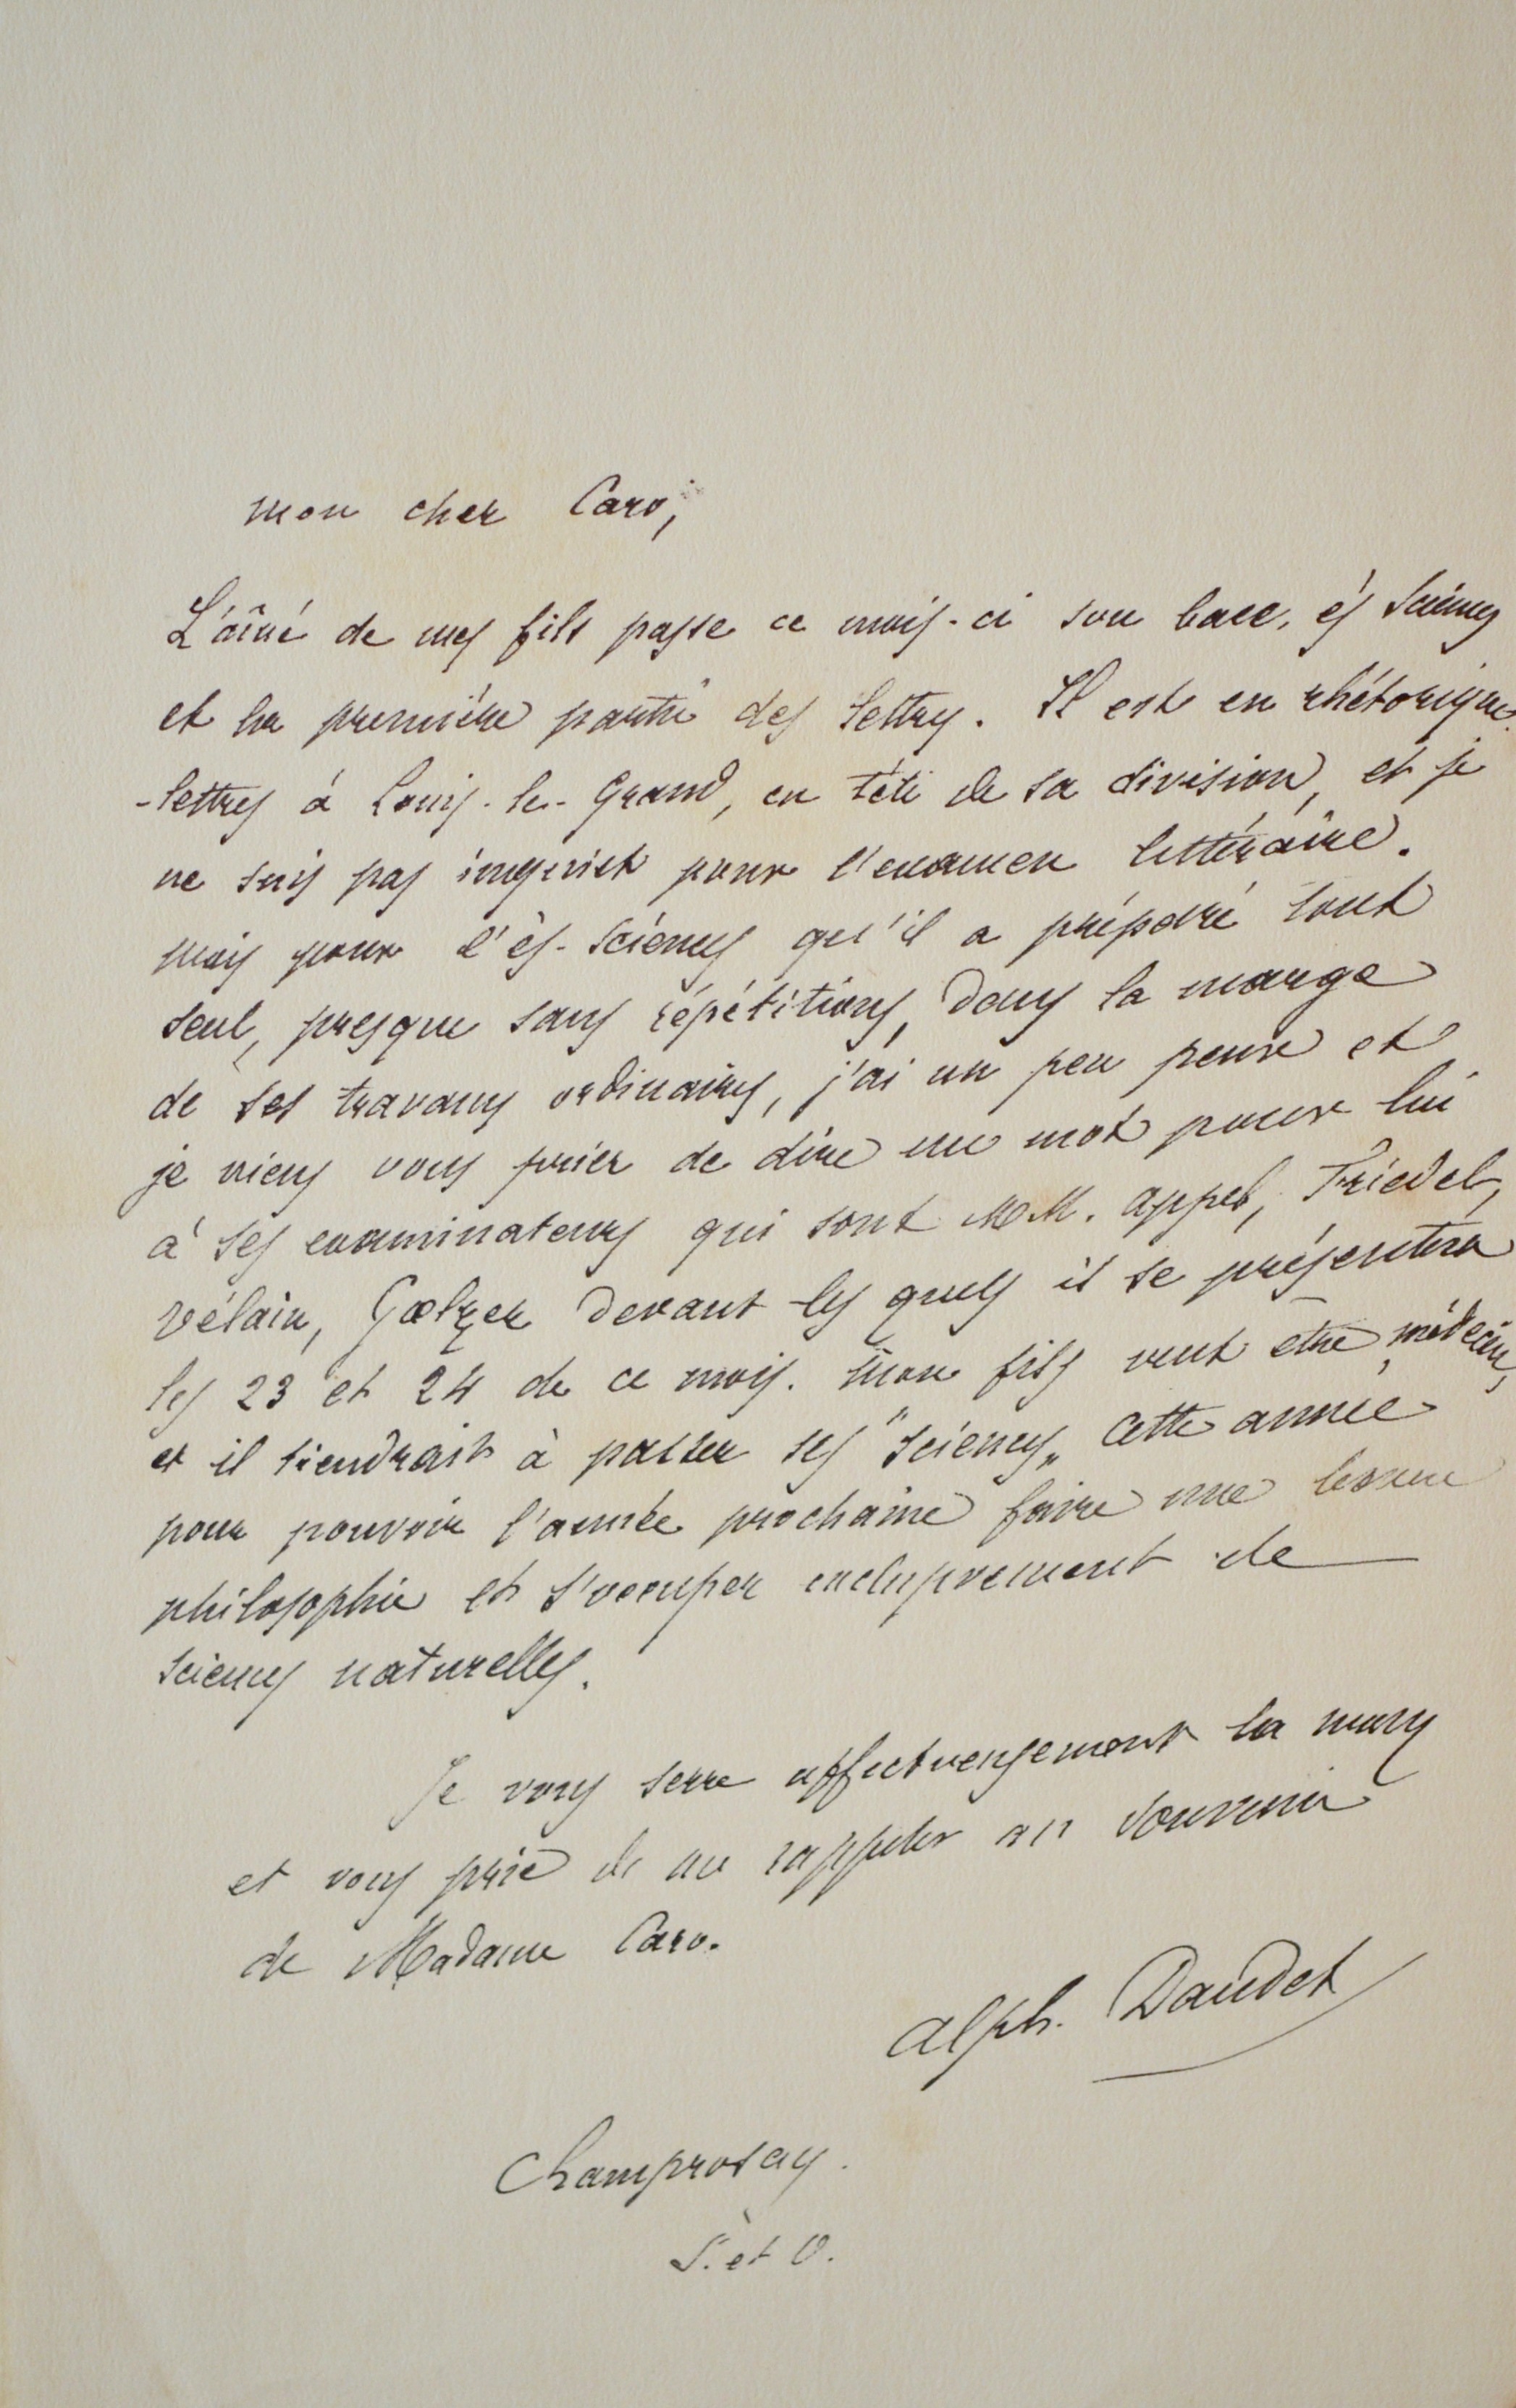 mon cher Caro,
L'aîné de mes fils passe ce mois-ci son bacc. ès sciences
et la première partie des lettres. Il est en rhétorique
-lettres à Louis-le-Grand, en tête de sa division, et je
ne suis pas inquiet pour l'examen littéraire.
mais pour l'ès-sciences qu'il a préparé tout
seul, presque sans répétitions, dans la marge
de ses travaux ordinaires, j'ai un peu peur et
je viens vous prier de dire un mot pour lui
à ses examinateurs qui sont M.M. Appel, Friedel,
Vélain, Gœlzer devant les quels il se présentera
les 23 et 24 de ce mois. Mon fils veut être médecin,
et il tiendrait à passer ses "sciences" cette année
pour pouvoir l'année prochaine faire une bonne
philosophie et s'occuper exclusivement de
sciences naturelles.
Je vous serre affectueusement la main
et vous prie de me rappeler au souvenir
de Madame Caro.
Alph. Daudet
Champrosay.
S. et O.